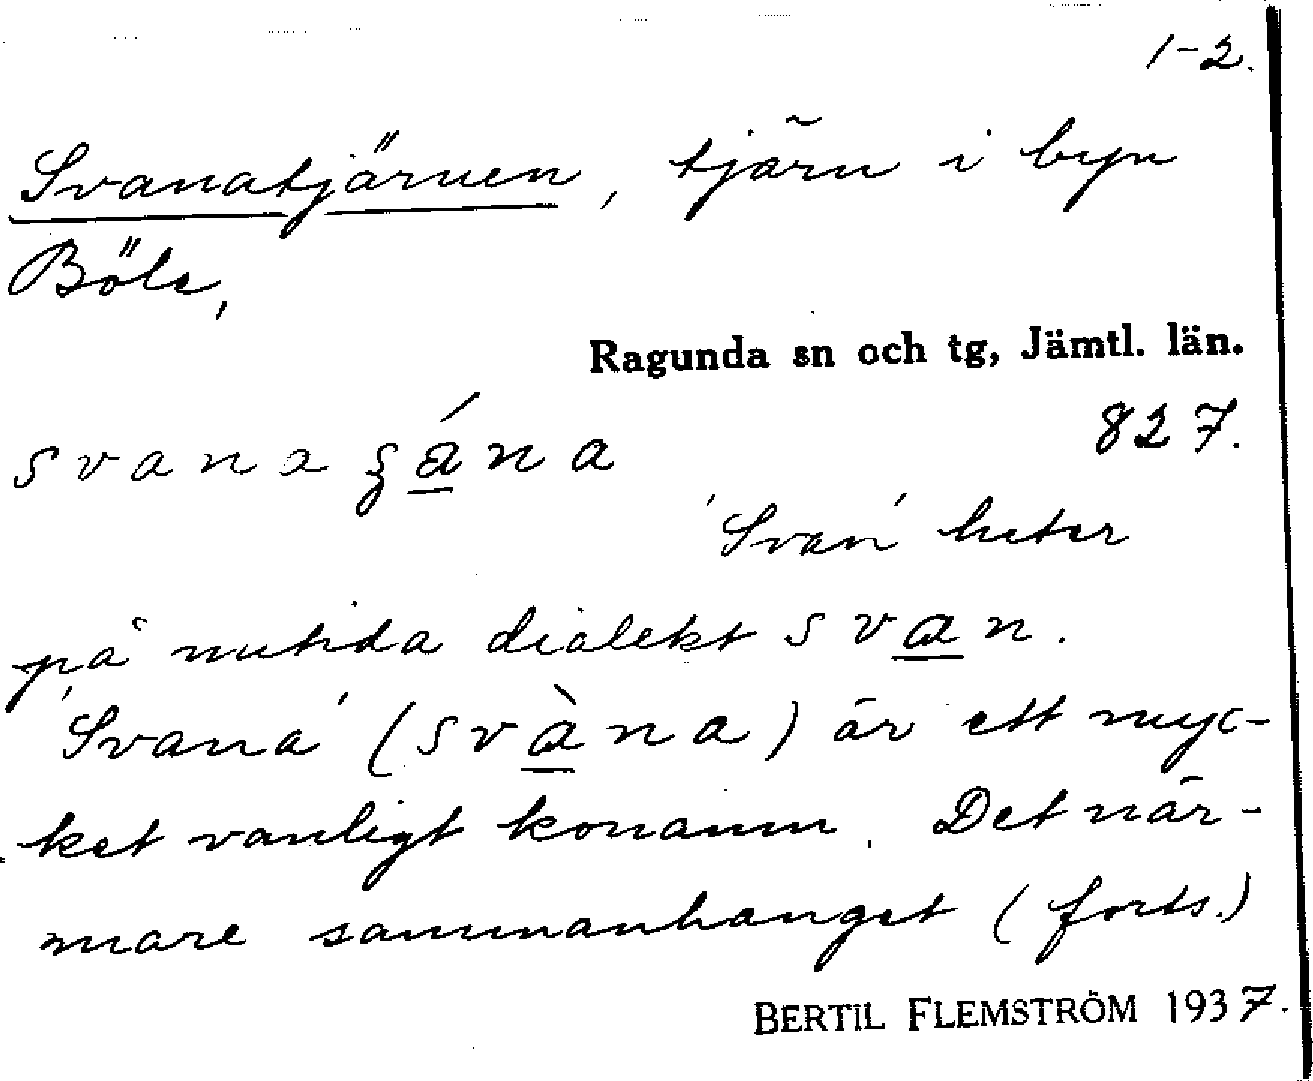 1-2.
Svanatjärnen, tjärn i byn
Böle,
Ragunda sn och tg, Jämtl. län.
svana ʂána
827.
'Svan' heter
på nutida dialekt svan.
'Svana' (svàna) är ett myc-
ket vanligt konamn. Det när-
mare sammanhanget (forts.)
BERTIL FLEMSTRÖM 1937.